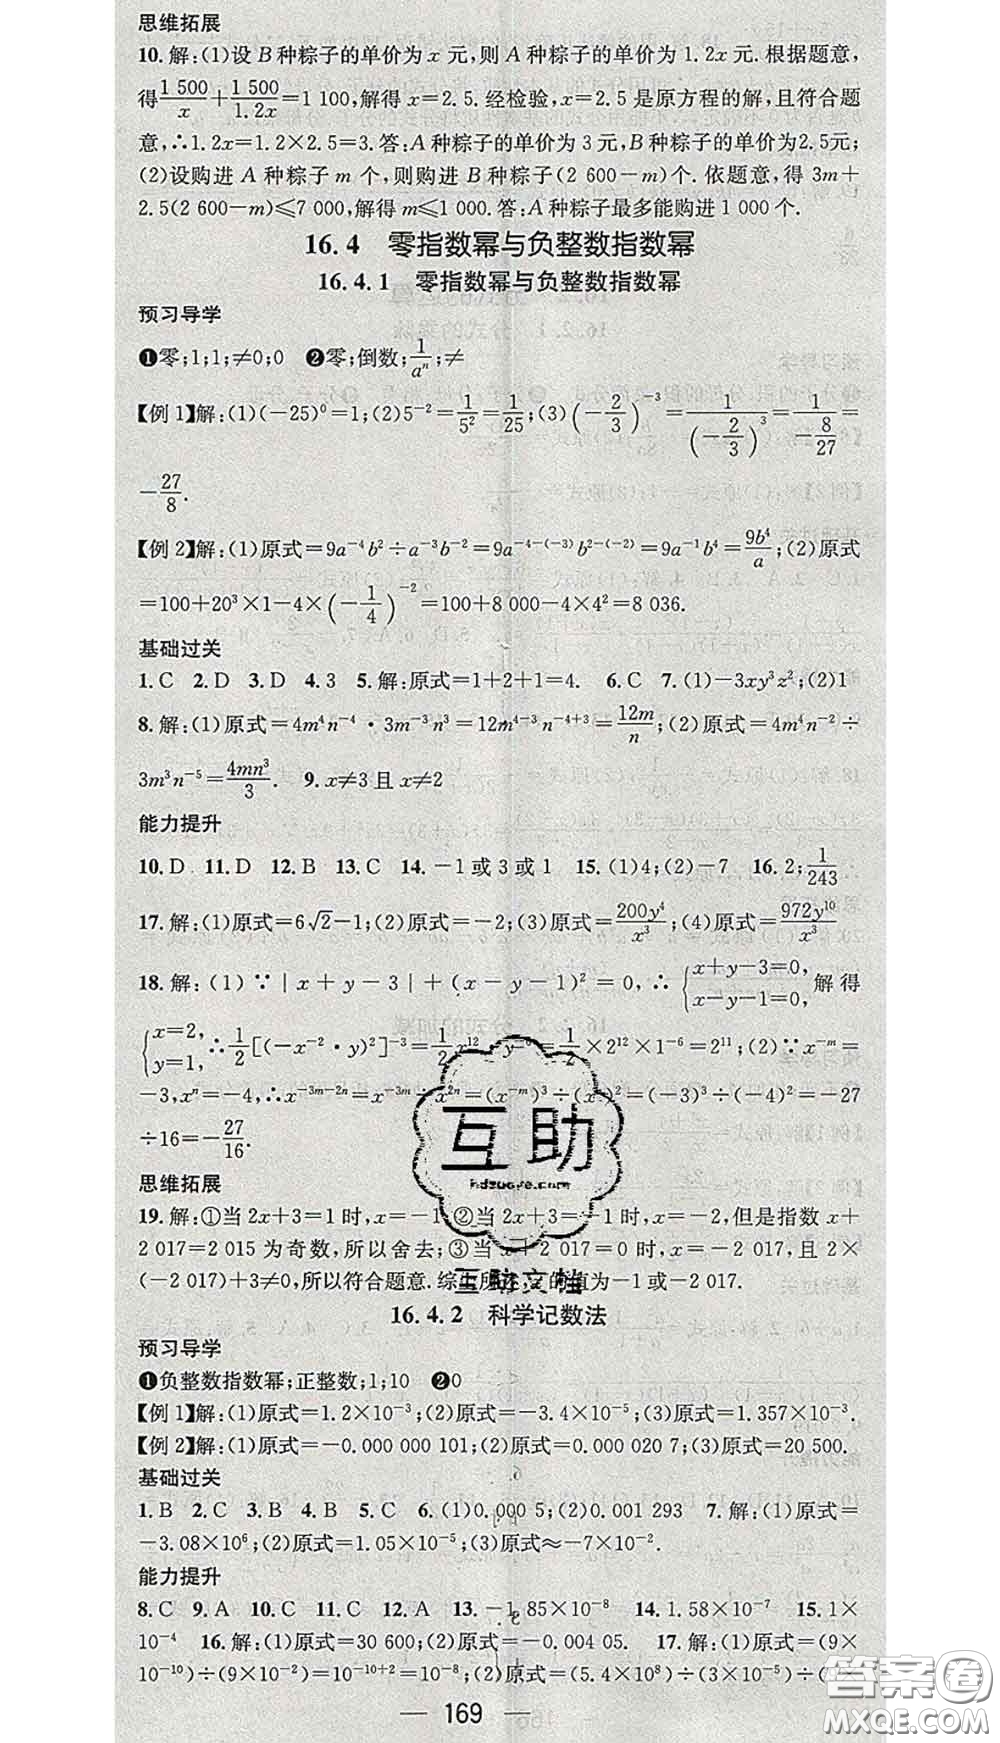 思维拓展
10. 解:(1)设 B 种粽子的单价为 x 元,则 A 种粽子的单价为 1.2x 元.根据题意,
得 1 500/x + 1 500/1.2x =1 100,解得 x=2.5.经检验,x=2.5 是原方程的解,且符合题
意,∴1.2x=1.2×2.5=3.答:A 种粽子的单价为 3 元,B 种粽子的单价为2.5元;
(2)设购进 A 种粽子 m 个,则购进 B 种粽子(2 600-m)个.依题意,得 3m+
2.5(2 600-m)≤7 000,解得 m≤1 000.答:A 种粽子最多能购进 1 000 个.
16.4 零指数幂与负整数指数幂
16.4.1 零指数幂与负整数指数幂
预习导学
❶零;1;1;≠0;0 ❷零;倒数;1/aⁿ;≠
【例 1】解:(1)(-25)⁰=1;(2)5⁻²=1/5²=1/25;(3)(-2/3)⁻³=1/(-2/3)³=1/(-8/27)=
-27/8.
【例 2】解:(1)原式=9a⁻⁴b²÷a⁻³b⁻²=9a⁻⁴⁻⁽⁻³⁾b²⁻⁽⁻²⁾=9a⁻¹b⁴=9b⁴/a;(2)原式
=100+20³×1-4×(-1/4)⁻²=100+8 000-4×4²=8 036.
基础过关
1. C 2. D 3. D 4. 3 5. 解:原式=1+2+1=4. 6. C 7. (1)-3xy³z²;(2)1
8. 解:(1)原式=4m⁴n⁻⁴·3m⁻³n³=12m⁴⁻³n⁻⁴⁺³=12m/n;(2)原式=4m⁴n⁻²÷
3m³n⁻⁵=4mn³/3. 9. x≠3 且 x≠2
能力提升
10. D 11. D 12. B 13. C 14. -1 或 3 或 1 15. (1)4;(2)-7 16. 2;1/243
17. 解:(1)原式=6√2-1;(2)原式=-2;(3)原式=200y⁴/x³;(4)原式=972y¹⁰/x³
18. 解:(1)∵|x+y-3|+(x-y-1)²=0,∴{x+y-3=0, x-y-1=0, 解得
{x=2, y=1, ∴1/2[(-x⁻²·y)²]⁻³=1/2x¹²·y⁻⁶=1/2×2¹²×1⁻⁶=2¹¹;(2)∵x⁻ᵐ=
-3,xⁿ=-4,∴x⁻³ᵐ⁻²ⁿ=x⁻³ᵐ÷x²ⁿ=(x⁻ᵐ)³÷(xⁿ)²=(-3)³÷(-4)²=-27
÷16=-27/16.
思维拓展
19. 解:①当 2x+3=1 时,x=-1;②当 2x+3=-1 时,x=-2,但是指数 x+
2 017=2 015 为奇数,所以舍去;③当 x+2 017=0 时,x=-2 017,且 2×
(-2 017)+3≠0,所以符合题意.综上所述,x的值为-1 或-2 017.
16.4.2 科学记数法
预习导学
❶负整数指数幂;正整数;1;10 ❷0
【例 1】解:(1)原式=1.2×10⁻³;(2)原式=-3.4×10⁻⁵;(3)原式=1.357×10⁻³.
【例 2】解:(1)原式=-0.000 000 101;(2)原式=0.000 020 7;(3)原式=20 500.
基础过关
1. B 2. C 3. B 4. B 5. C 6. (1)0.000 5;(2)0.001 293 7. 解:(1)原式=
-3.08×10⁶;(2)原式=1.05×10⁻⁵;(3)原式≈-7×10⁻².
能力提升
8. C 9. A 10. C 11. C 12. A 13. -1.85×10⁻⁸ 14. 1.58×10⁻⁷ 15. 1×
10⁻⁴ 16. 解:(1)原式=30 600;(2)原式=-0.004 05. 17. 解:(1)原式=(9×
10⁻¹⁰)÷(9×10⁻²)=10⁻¹⁰⁺²=10⁻⁸;(2)原式=(5.4×10⁸)÷(3×10⁻⁵)÷(3×
— 169 —
互助
hdzuoye.com
互助文档
答案圈
MXQE.COM